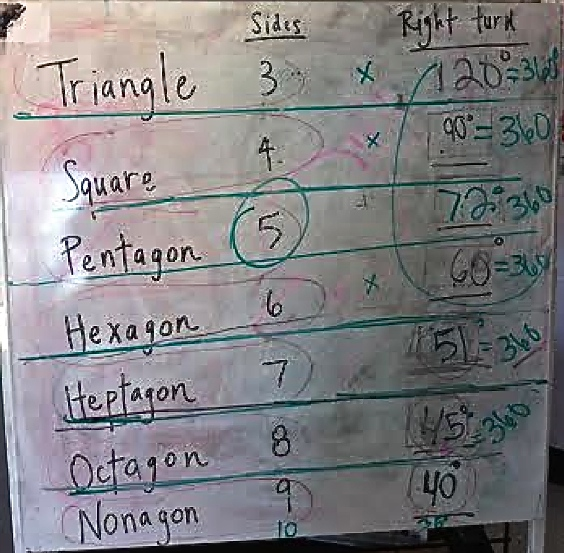 Sides Right turn
Triangle 3 x 120°=360°
Square 4 x 90°=360
Pentagon 5 72°=360
Hexagon 6 x 60°=360
Heptagon 7 51°=360
Octagon 8 45°=360
Nonagon 9 40°
10